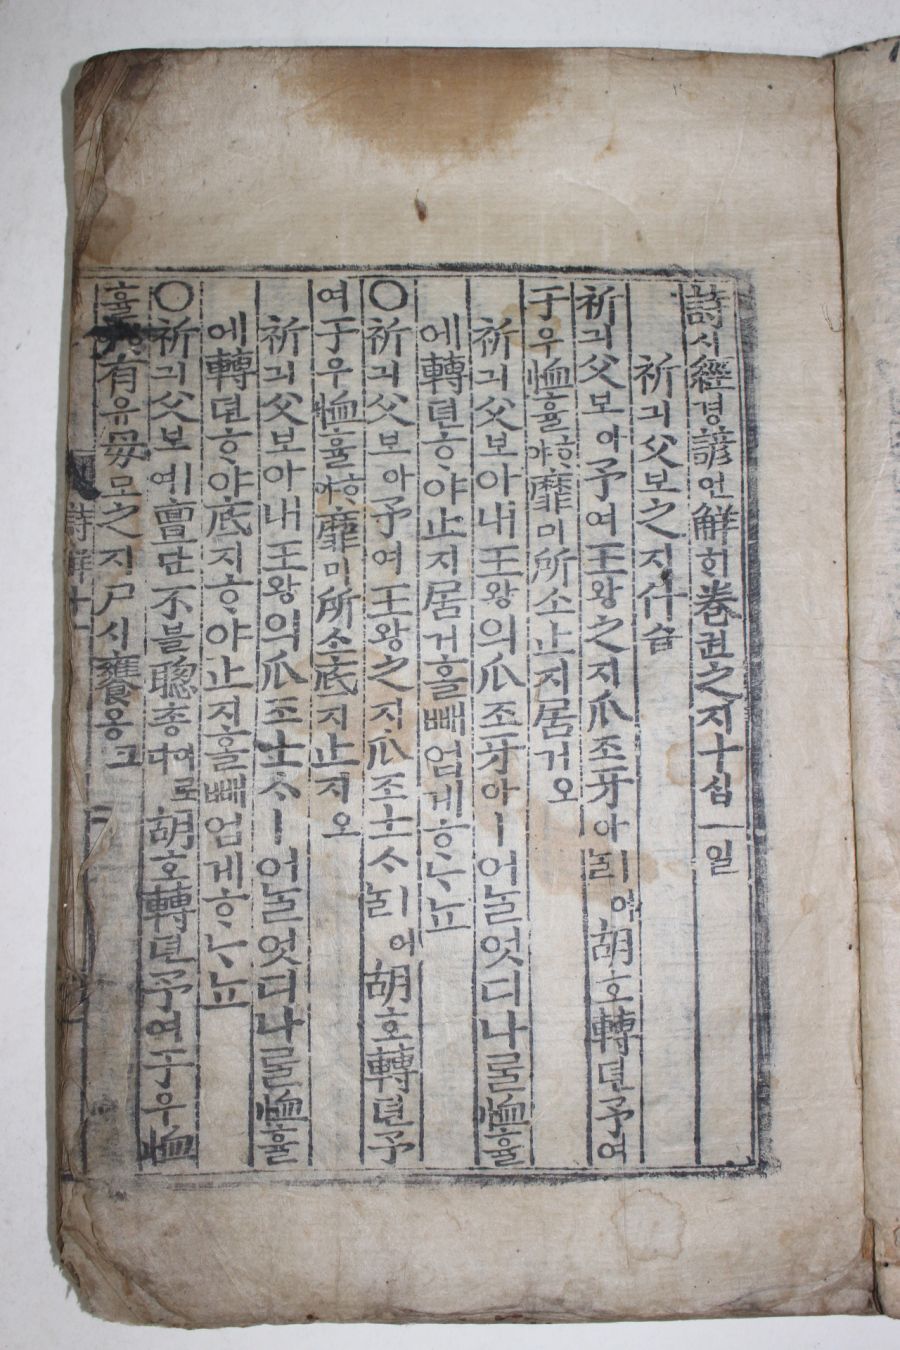 詩시經경諺언解ᄒᆡ卷권之지十십一일
祈긔父보之지什습
祈긔父보아予여王왕之지爪조牙아ㅣ어ᄂᆞᆯ胡호轉뎐予여
于우恤휼ᄒᆞ야靡미所소止지居거오
祈긔父보아내王왕의爪조牙아ㅣ어ᄂᆞᆯ엇디나ᄅᆞᆯ恤휼
에轉뎐ᄒᆞ야止지居거ᄒᆞᆯ빼업게ᄒᆞᄂᆞ뇨
○祈긔父보아予여王왕之지爪조士ᄉᆞㅣ어ᄂᆞᆯ胡호轉뎐予
여于우恤휼ᄒᆞ야靡미所소底지止지오
祈긔父보아내王왕의爪조士ᄉᆞㅣ어ᄂᆞᆯ엇디나ᄅᆞᆯ恤휼
에轉뎐ᄒᆞ야底지ᄒᆞ야止지ᄒᆞᆯ빼업게ᄒᆞᄂᆞ뇨
○祈긔父보예亶단不블聰총胡호轉뎐予여于우恤
휼有유母모之지尸시饔옹고
詩解十一